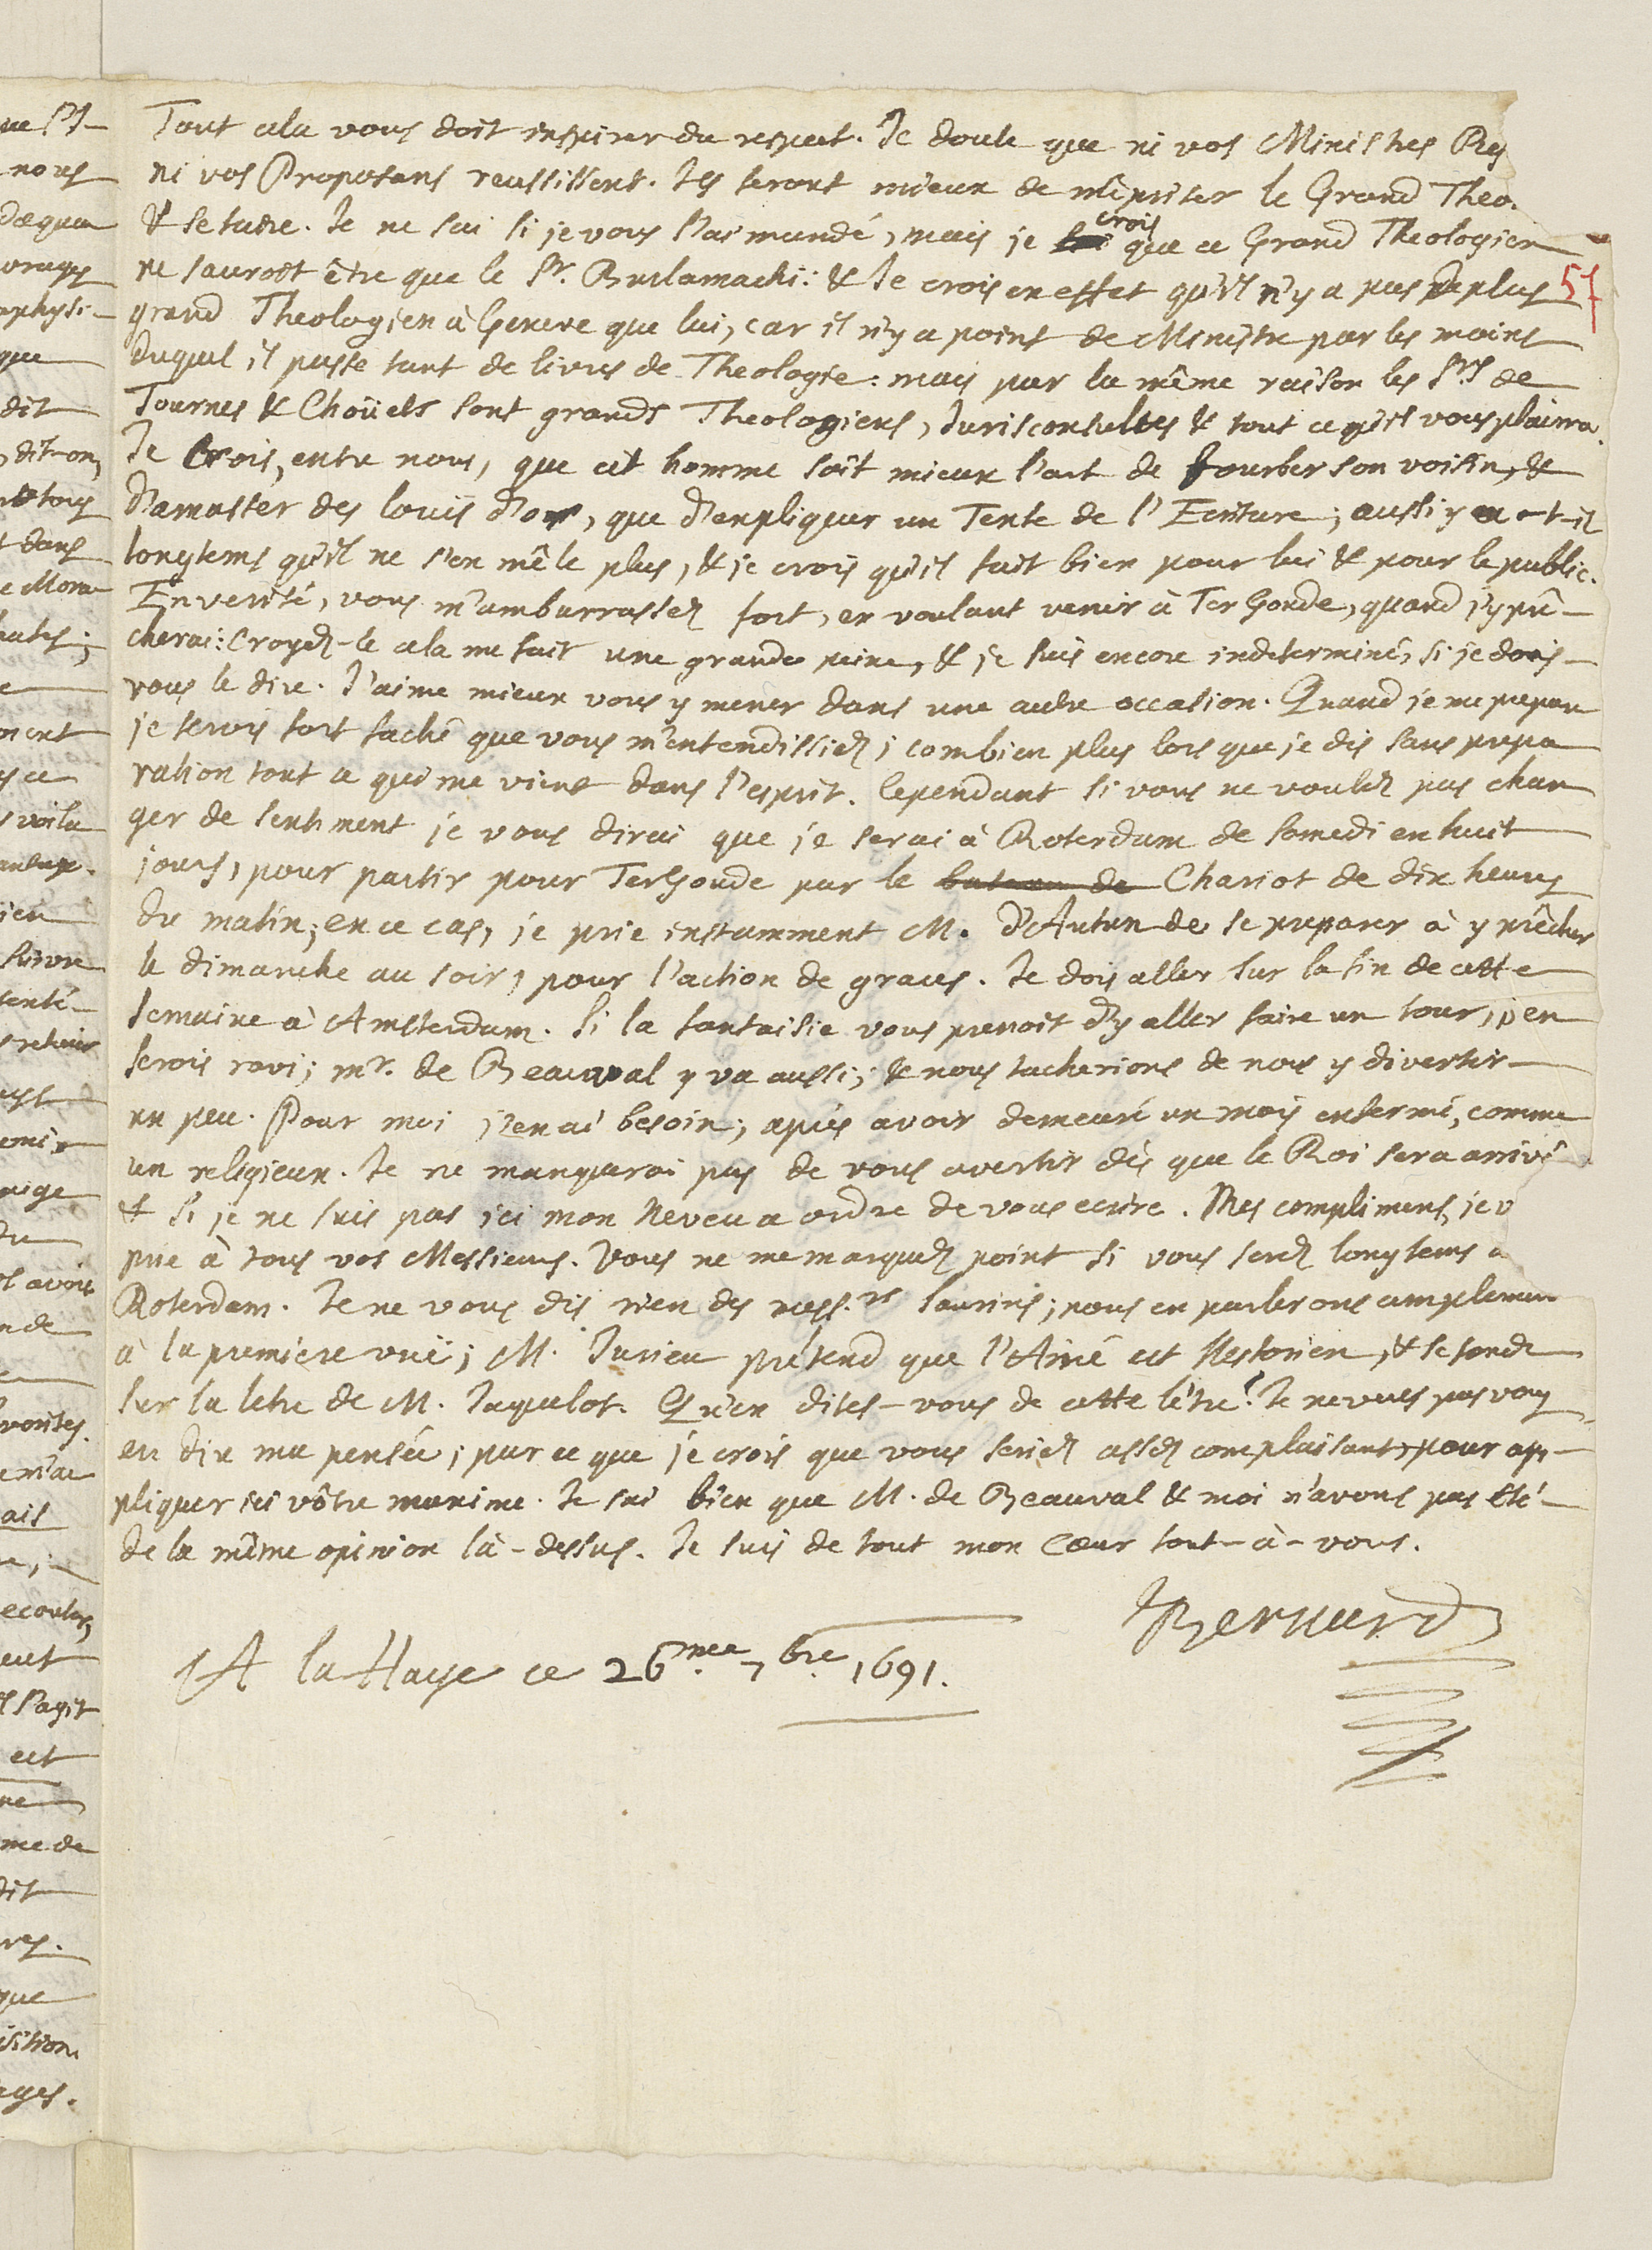 Tout cela vous doit inspirer du respect. Je doute que ni vos Ministres Re
ni vos Proposans reussissent. Ils feront mieux de mêpriser le Grand Theo
& se taire. Je ne sai si je vous l'ai mandé, mais je crois que ce Grand Theologien
ne sauroit être que le Sr. Burlamachi: & Je crois en effet qu'il n'y a pas de plus
57
grand Theologien à Geneve que lui, car il n'y a point de Ministre par les mains
duquel il passe tant de livres de Theologie: mais par la même raison les Srs de
Tournes & Choüets sont grands Theologiens, Jurisconsultes & tout ce qu'il vous plairra.
Je Crois, entre nous, que cet homme sait mieux l'art de fourber son voisin, &
d'amasser des louis d'or, que d'expliquer un Texte de l'Ecriture; aussi y a-t-il
longtems qu'il ne s'en mêle plus, & je crois qu'il fait bien pour lui & pour le public.
En verité, vous m'ambarrassez fort, en voulant venir à TerGoude, quand j'y prê-
cherai: Croyez-le cela me fait une grande peine, & je suis encore indeterminé, si je dois
vous le dire. J'aime mieux vous y mener dans une autre occasion. Quand je me prepare
je serois fort faché que vous m'entendissiez; combien plus lors que je dis sans prepa
ration tout ce qui me vient dans l'esprit. Cependant si vous ne voulez pas chan
ger de sentiment je vous dirai que je serai à Roterdam de samedi en huit
jours, pour partir pour TerGoude par le bateau de Chariot de dix heures
du matin; en ce cas, je prie instamment M. d'Autun de se preparer à y prêcher
le dimanche au soir, pour l'action de graces. Je dois aller sur la fin de cette
semaine à Amsterdam. Si la fantaisie vous prenoit d'y aller faire un tour, j'en
serois ravi; mr. de Beauval y va aussi; & nous tacherions de nous y divertir
un peu. Pour moi j'en ai besoin; après avoir demeuré un mois enfermé, comme
un religieux. Je ne manquerai pas de vous avertir dès que le Roi sera arrivé
& si je ne suis pas ici mon Neveu a ordre de vous ecrire. Mes complimens, je v
prie à tous vos Messieurs. Vous ne me marquez point si vous serez longtems a
Roterdam. Je ne vous dis rien des mess.rs Saurins; nous en parlerons amplement
à la premiere vuë; M. Jurieu prétend que l'Ainé est Nestorien, & se fonde
sur la letre de M. Jaquelot. Qu'en dites-vous de cette létre? Je ne veus pas vous
en dire ma pensée; par ce que je crois que vous seriez assez complaisant, pour ap-
pliquer ici vôtre maxime. Je sai bien que M. de Beauval & moi n'avons pas été
de la même opinion là-dessus. Je suis de tout mon Cœur tout-à-vous.
JBernard
A la Haye ce 26.me 7.bre 1691.